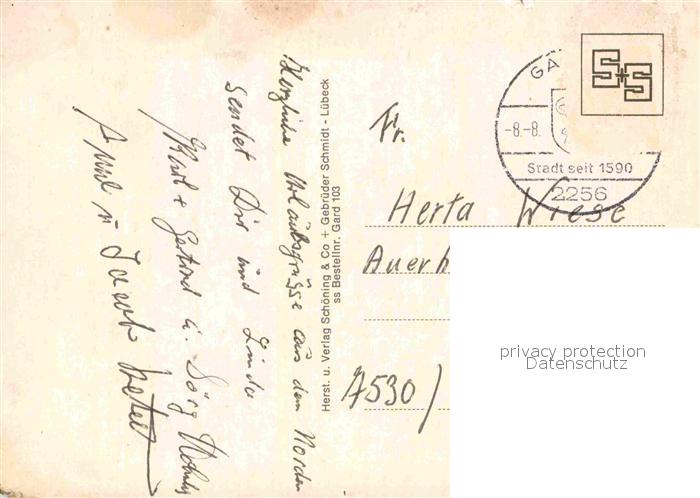 Herzliche Urlaubsgrüsse aus dem Norden
sendet Dir und
Gertrud u. Jörg
Herst. u. Verlag Schöning & Co + Gebrüder Schmidt - Lübeck
ss Bestellnr. Gard 103
S+S
GA
-8.-8.
Stadt seit 1590
2256
Fr.
Herta Wiese
Auerh
7530/
privacy protection
Datenschutz